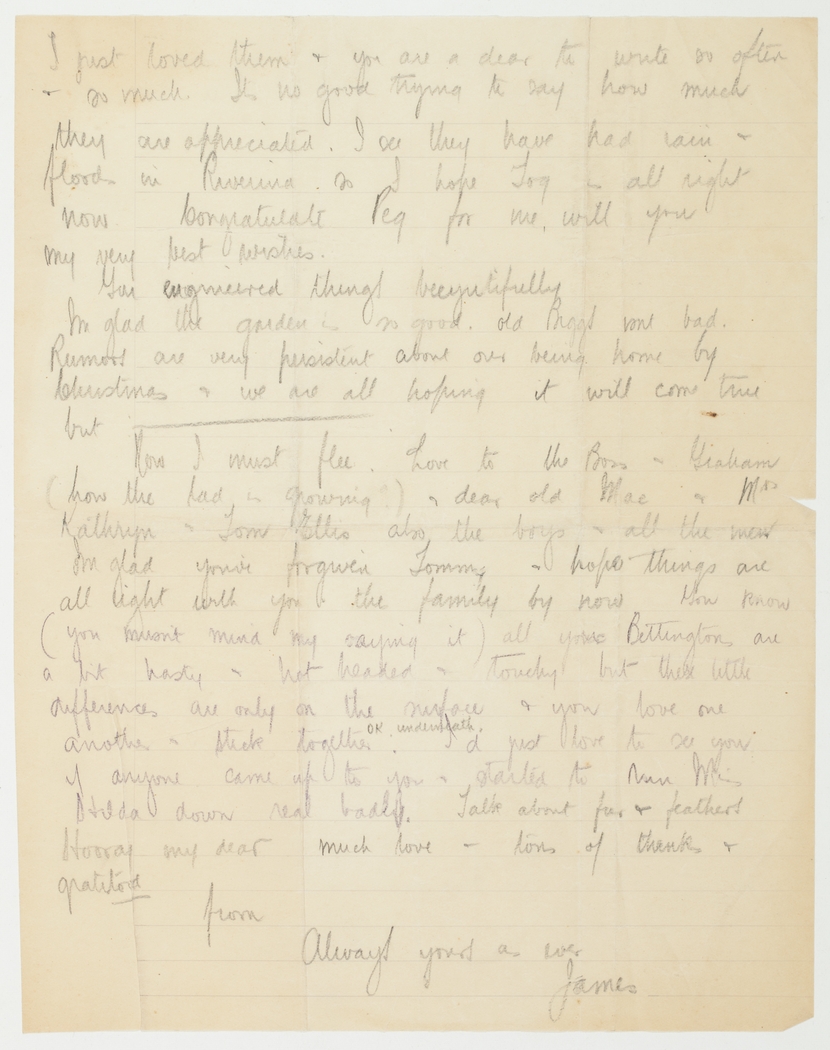 I just loved them & you are a dear to write so often
& so much. Its no good trying to say how much
they are appreciated. I see they have had rain &
floods in Riverina. so I hope Tog is all right
now. Congratulate Peg for me, will you
my very best wishes.
You engineered things beeyutifully
Im glad the garden is so good. old Biggs not bad.
Rumors are very persistent about our being home by
Christmas & we are all hoping it will come true
but
Now I must flee. Love to the Boss & Graham
(how the lad is growing!) & dear old Mac & Mrs
Kathryn & Tom Ellis also the boys & all the men
Im glad youve forgiven Tommy & hope things are
all right with you & the family by now. You know
(you musnt mind my saying it) all you Bettingtons are
a bit hasty & hot headed & touchy but these little
differences are only on the surface & you love one
another & stick together OK. underneath. I'd just love to see you
if anyone came up to you & started to run Miss
Hilda down real badly. Talk about fur & feathers
Hooray my dear much love & tons of thanks &
gratitood
from
Always yours as ever
James